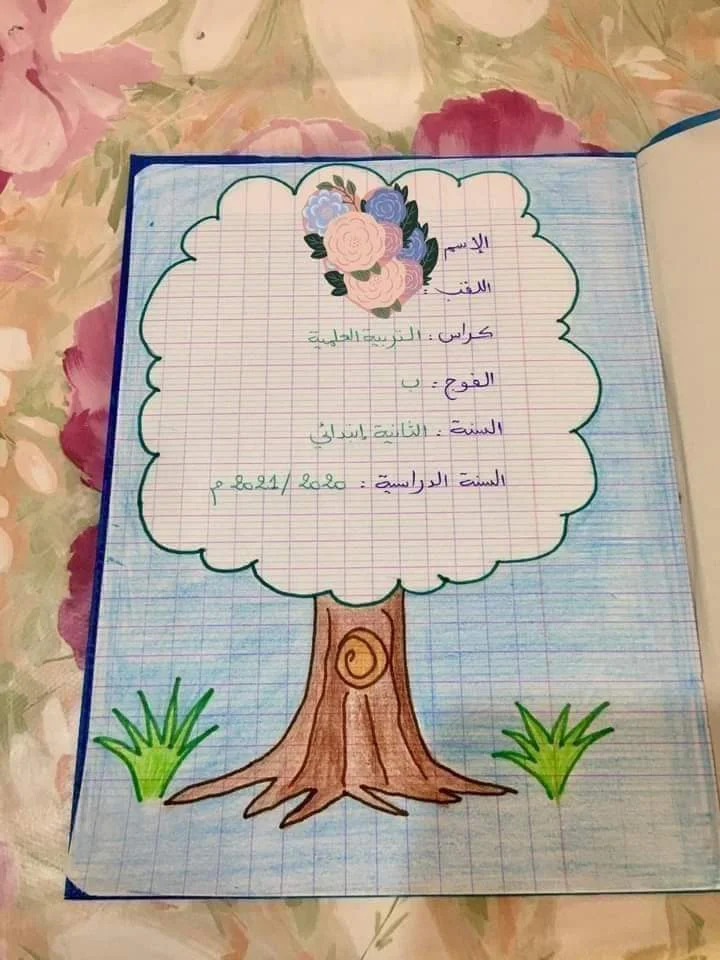 الإسم
اللقب :
كراس : التربية العلمية
الفوج : ب
السنة : الثانية إبتدائي
السنة الدراسية : 2020/2021 م